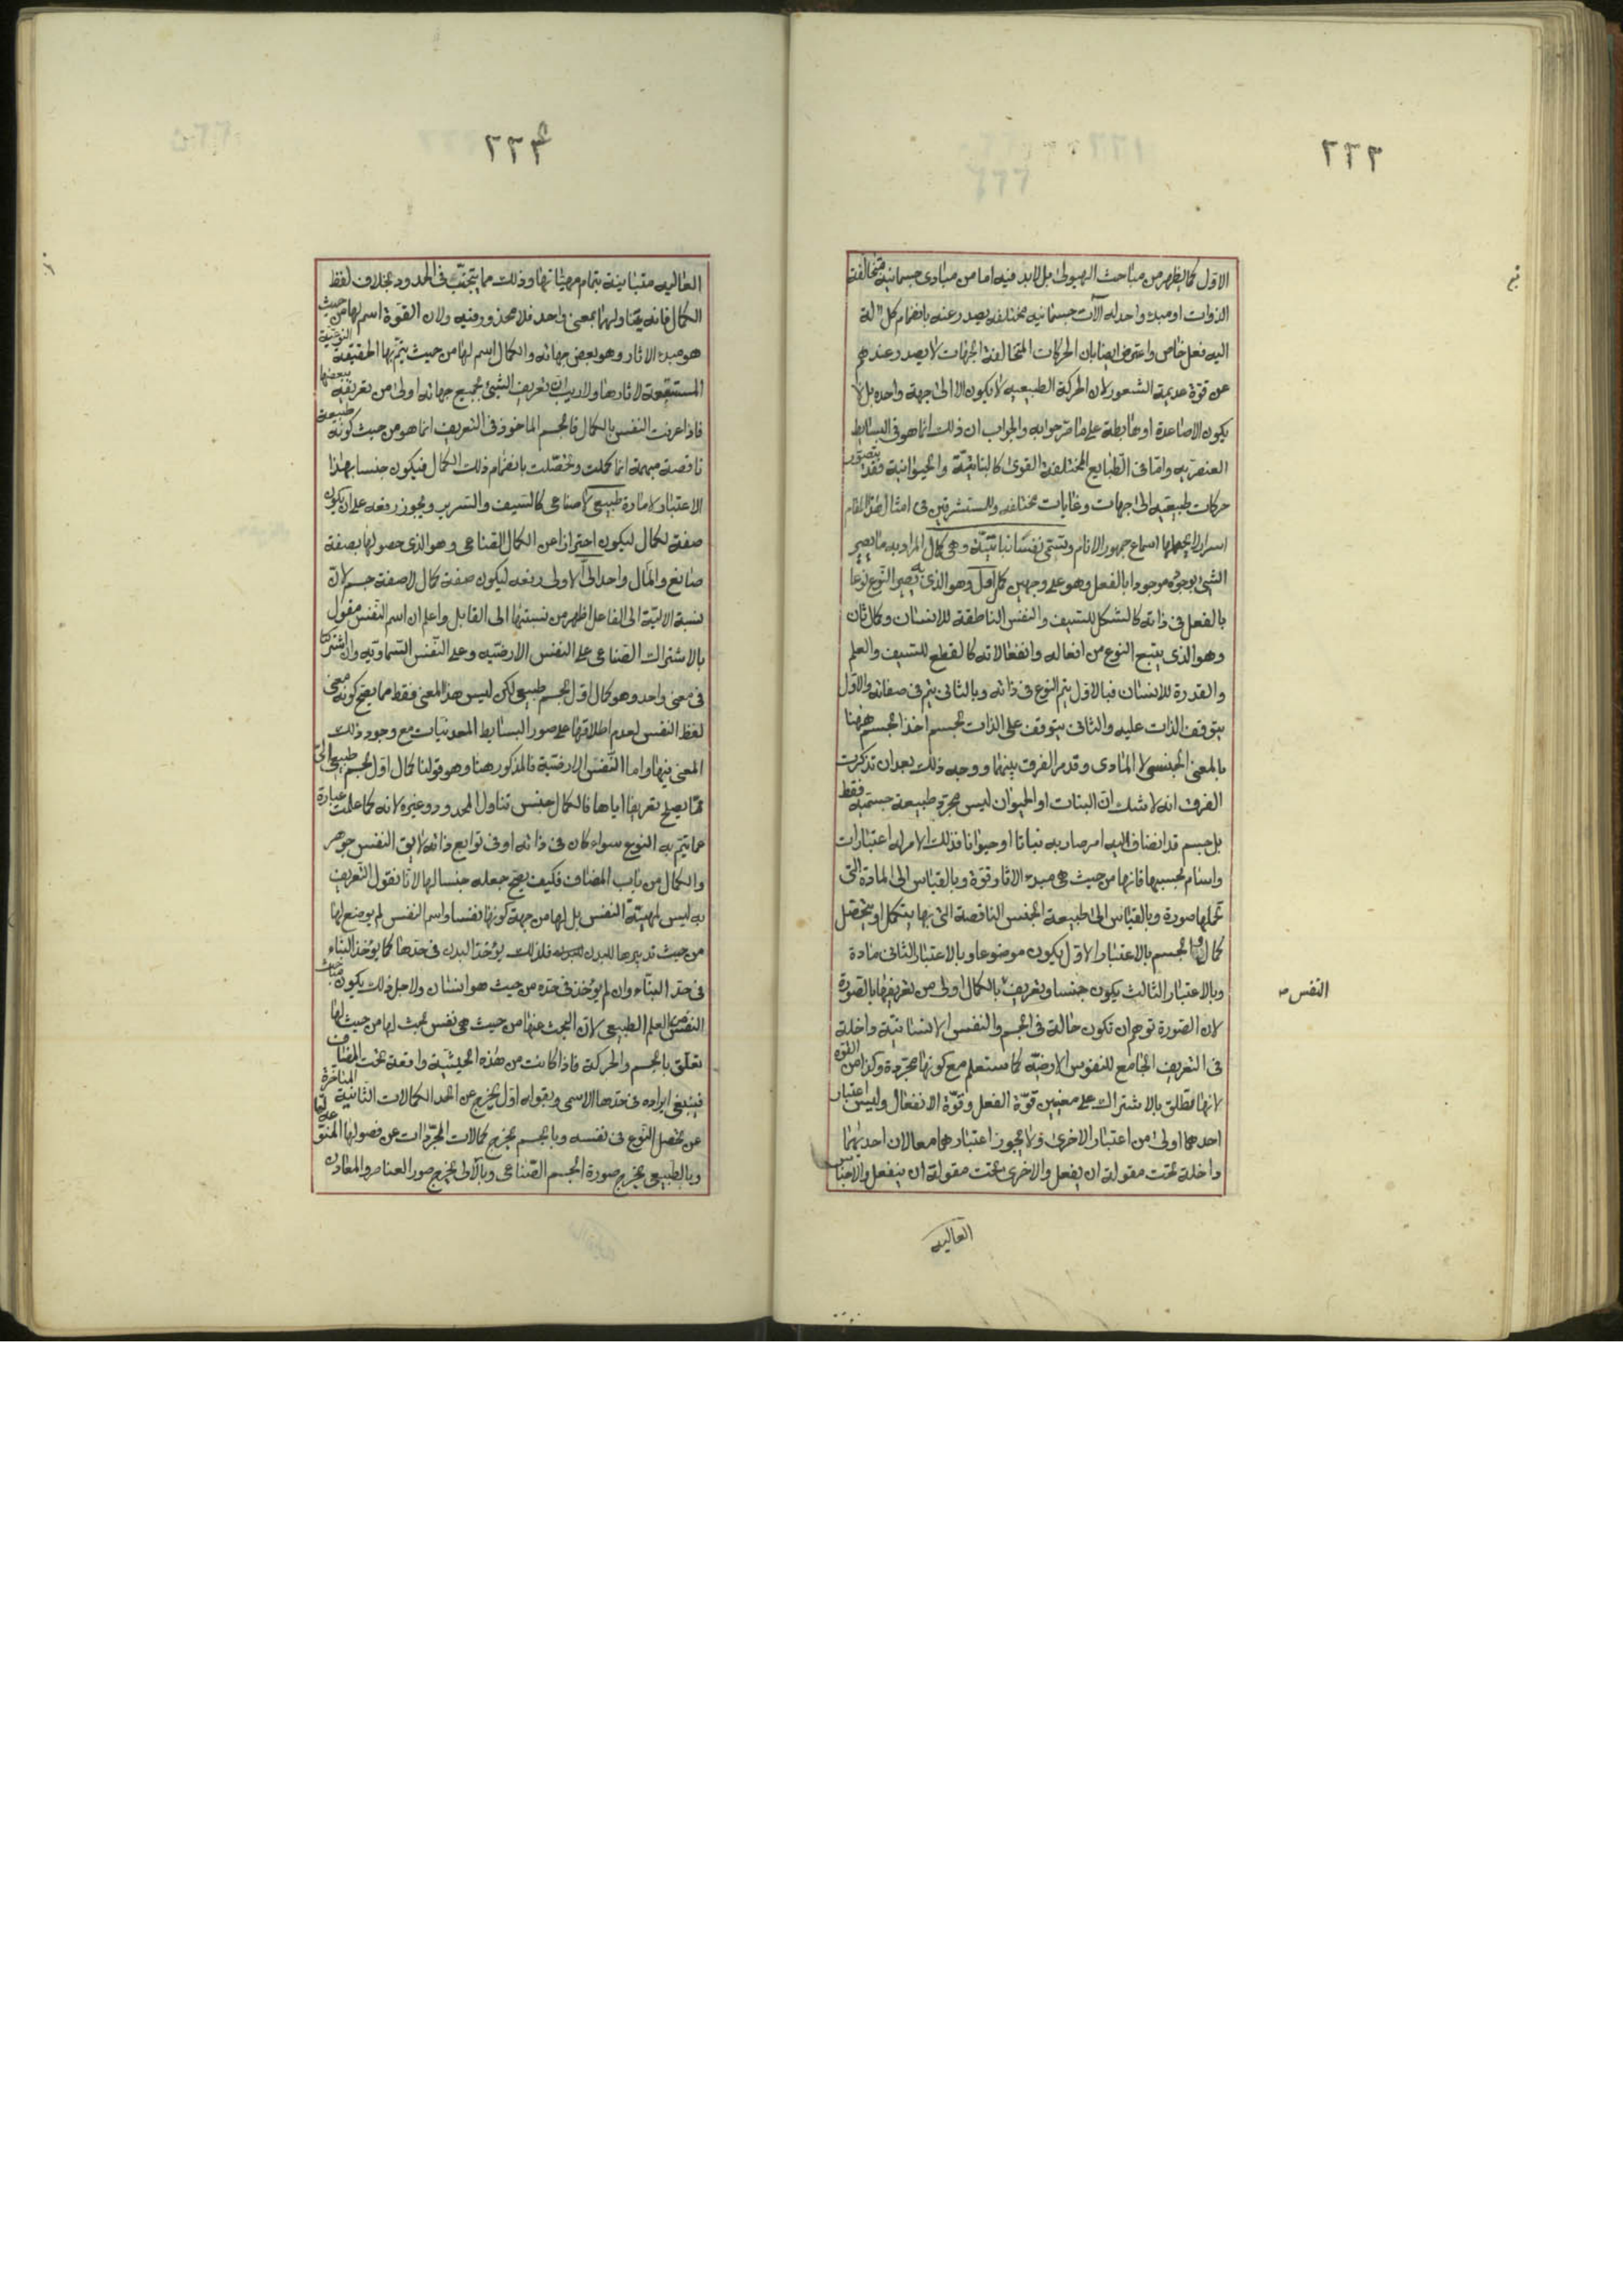 ٢٢٣
الاول كما يظهر من مباحث الهيولى بل لا بد فيه اما من مبادى جسمانية متخالفة
الذوات او مبدء واحد له آلات جسمانيه مختلفه يصدر عنه بانضمام كل آلة
اليه فعل خاص واعترض ايضا بان الحركات المتخالفة الجهات لا يصدر عندهم
عن قوة عديمة الشعور لان الحركة الطبيعيه لا يكون الا الى جهة واحده بل لا
يكون الا صاعدة او هابطة على ما مر جوابه والجواب ان ذلك انما هو فى البسايط
العنصريه واما فى الطبايع المختلفة القوى كالنباتيّة والحيوانية فقد يتصور
حركات طبيعيه الى جهات وغايات مختلفه وللمستشرقين فى امثال هذا المقام
اسرار لا يحتملها اسماع جمهور الانام وتسمّى نفسا نباتيّة وهى كمال المراد به ما يصير
الشئ بوجوده موجودا بالفعل وهو على وجهين كمال اول وهو الذى به يصير النوع نوعا
بالفعل فى ذاته كالشكل للسيف والنفس الناطقة للانسان وكمال ثان
وهو الذى يتبع النوع من افعاله وانفعالاته كالقطع للسيف والعلم
والقدرة للانسان فبالاول يتم النوع فى ذاته وبالثانى يتم فى صفاته والاول
يتوقف الذات عليه والثانى يتوقف على الذات لجسم اخذ الجسم ههنا
بالمعنى الجنسى لا المادى وقد مر الفرق بينهما ووجه ذلك بعد ان تذكرت
الفرق انه لا شك انّ النبات او الحيوان ليس مجرّد طبيعة جسميه فقط
بل جسم قد انضاف اليه امر صار به نباتا او حيوانا فذلك الامر له اعتبارات
واسام بحسبها فانها من حيث هى مبدء الاثار قوة وبالقياس الى المادة التى
تحلها صورة وبالقياس الى طبيعة الجنس الناقصة التى بها يتكمل او يتحصل
كمال والجسم بالاعتبار الاول يكون موضوعا وبالاعتبار الثانى مادة
وبالاعتبار الثالث يكون جنسا وتعريف بالكمال اولى من تعريفها بالصورة
النفس
لان الصورة توهم ان تكون حالة فى الجسم والنفس الانسانيّة داخلة
فى التعريف الجامع للنفوس الارضيّه كما ستعلم مع كونها مجرّدة وكذا من القوه
لانها تطلق بالاشتراك على معنيين قوّة الفعل وقوّة الانفعال وليس اعتبار
احدهما اولى من اعتبار الاخرى ولا يجوز اعتبارهما معا لان احديهما
داخلة تحت مقولة ان يفعل والاخرى تحت مقولة ان ينفعل والاجناس
العاليه
٢٢٤
العاليه متباينة بتمام مهيّاتها وذلك مما يتجنّب فى الحدود بخلاف لفظ
الكمال فانه يتناولهما بمعنى واحد فلا محذور فيه ولان القوّة اسم لها من حيث
هو مبدء الاثار وهو بعض جهاته والكمال اسم لها من حيث يتم بها الحقيقة النوعيّة
المستتبعة لاثارها ولا ريب ان تعريف الشئ بجميع جهاته اولى من تعريفه ببعضها
فاذا عرفت النفس بالكمال فالجسم الماخوذ فى التعريف انما هو من حيث كونه طبيعة
ناقصة مبهمة انما كملت وتحصّلت بانضمام ذلك الكمال فيكون جنسا بهذا
الاعتبار لا مادة طبيعى لا صناعى كالسيف والسرير ويجوز رفعه على ان يكون
صفة لكمال ليكون احترازا عن الكمال الصّناعى وهو الذى حصولها بصفة
صانع والمآل واحد آلىّ الاولى رفعه ليكون صفة كمال لا صفة جسم لانّ
نسبة الاليّة الى الفاعل اظهر من نسبتها الى القابل واعلم ان اسم النفس مقول
بالاشتراك الصّناعى على النفس الارضيّه وعلى النّفس السّماويّه وان اشتركتا
فى معنى واحد وهو كمال اوّل لجسم طبيعى لكن ليس هذا المعنى فقط مما يصح كونه معنى
لفظ النفس لعدم اطلاقها على صور البسايط المعدنيات مع وجود ذلك
المعنى فيها واما النّفس الارضيّة فالمذكور هنا وهو قولنا كمال اول لجسم طبيعى آلىّ
ممّا يصلح تعريفا اياها فالكمال جنس تناول المحدود وغيره لانه كما علمت عبارة
عما يتمّ به النوع سواء كان فى ذاته او فى توابع ذاته لا يق النفس جوهر
والكمال من باب المضاف فكيف يصح جعله جنسا لها لانا نقول التّعريف
به ليس لمهيّة النفس بل لها من جهة كونها نفسا واسم النفس لم يوضع لها
من حيث تدبيرها للبدن فلذلك يؤخذ البدن فى حدها كما يؤخذ البناء
فى حدّ البنّاء وان لم يؤخذ فى حدّه من حيث هو انسان ولاجل ذلك يكون مباحث
النفس من العلم الطبيعى لانّ البحث عنها من حيث هى نفس بحث لها من حيث لها
تعلّق بالجسم والحركة فاذا كانت من هذه الحيثيّة واقعة تحت المضاف
فينبغى ايراده فى حدها الاسمى وبقوله اول يخرج عن الحد الكمالات الثّانية المتاخّرة
عن تحصل النّوع فى نفسه وبالجسم يخرج كمالات المجرّدات عن فصولها المنوّعة لها
وبالطبيعى يخرج صورة الجسم الصّناعى وبالآلى يخرج صور العناصر والمعادن